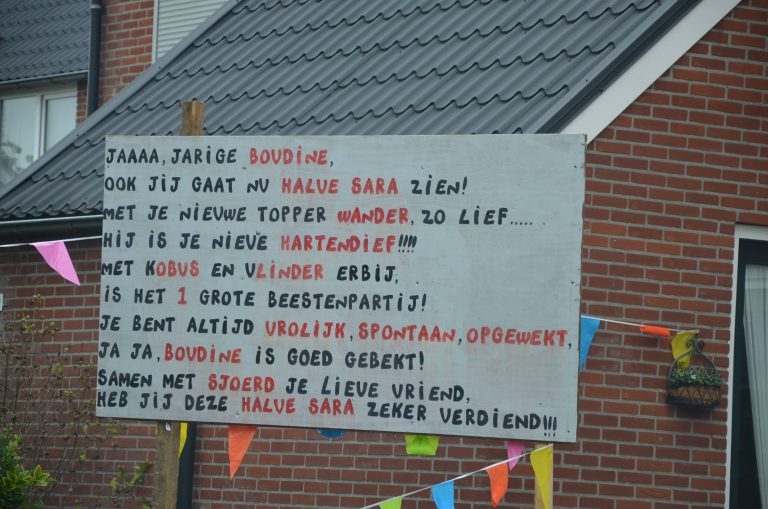 JAAAA, JARIGE BOUDINE,
OOK JIJ GAAT NU HALVE SARA ZIEN!
MET JE NIEUWE TOPPER WANDER, ZO LIEF.....
HIJ IS JE NIEVE HARTENDIEF!!!!
MET KOBUS EN VLINDER ERBIJ,
IS HET 1 GROTE BEESTENPARTIJ!
JE BENT ALTIJD VROLIJK, SPONTAAN, OPGEWEKT,
JA JA, BOUDINE IS GOED GEBEKT!
SAMEN MET SJOERD JE LIEVE VRIEND,
HEB JIJ DEZE HALVE SARA ZEKER VERDIEND!!!